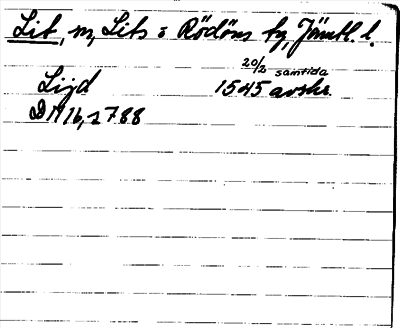 Lit, m, Lits o Rödöns tg, Jämtl. l.
20/2 samtida
Lijd 1545 avskr.
DN 16, s 788